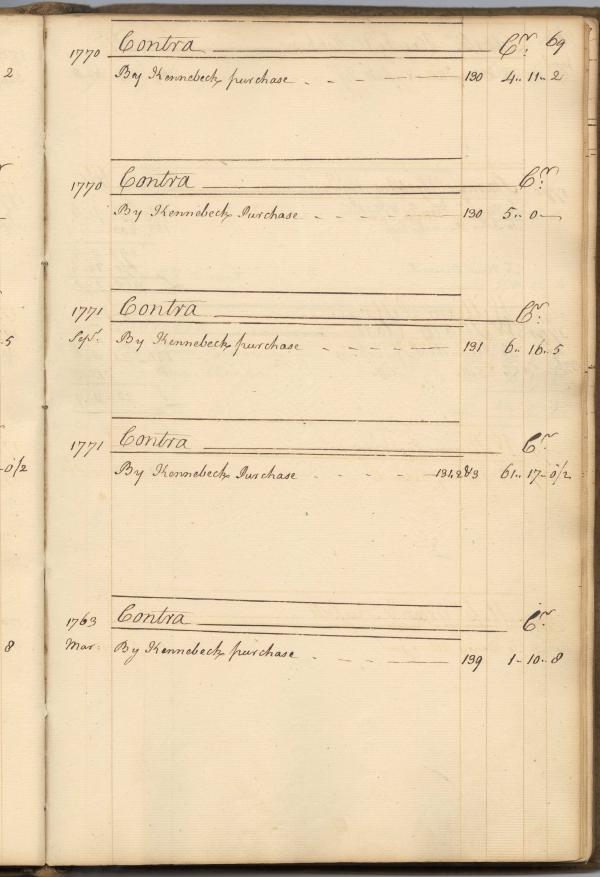 69
1770 Contra Cr.
2 By Kennebeck purchase - - - 130 4 .. 11 - 2
1770 Contra Cr.
By Kennebeck Purchase - - - 130 5 .. 0 -
1771 Contra Cr.
5 Sepr. By Kennebeck purchase - - - 131 6 .. 16 .. 5
1771 Contra Cr.
0/2 By Kennebeck Purchase - - - 131,2&3 61 .. 17 - 0/2
1763 Contra Cr.
8 Mar: By Kennebeck purchase - - - 139 1 - 10 .. 8